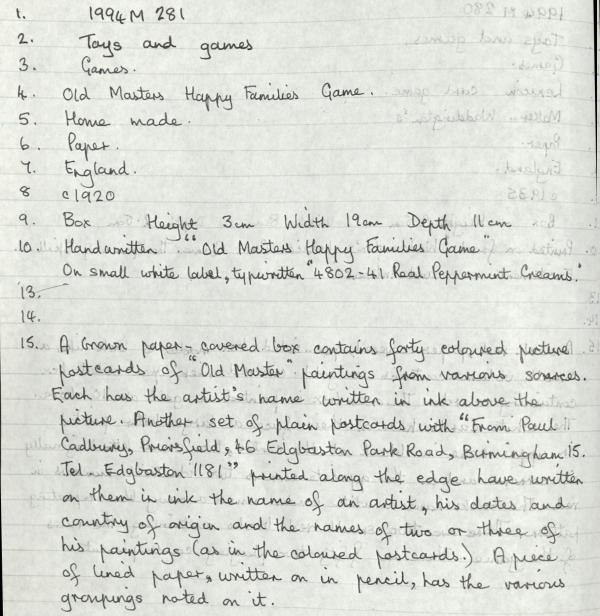 1. 1994 M 281
2. Toys and games
3. Games.
4. Old Masters Happy Families Game.
5. Home made.
6. Paper.
7. England.
8 c1920
9. Box Height 3cm Width 19cm Depth 11cm
10. Handwritten "Old Masters Happy Families Game"
On small white label, typwritten "4802-41 Real Peppermint Creams."
13.
14.
15. A brown paper-covered box contains forty coloured picture
postcards of "Old Master" paintings from various sources.
Each has the artist's name written in ink above the
picture. Another set of plain postcards with "From Paul
Cadbury, Priorsfield, 46 Edgbaston Park Road, Birmingham 15.
Tel. Edgbaston 1181" printed along the edge have written
on them in ink the name of an artist, his dates and
country of origin and the names of two or three of
his paintings (as in the coloured postcards.) A piece
of lined paper, written on in pencil, has the various
groupings noted on it.